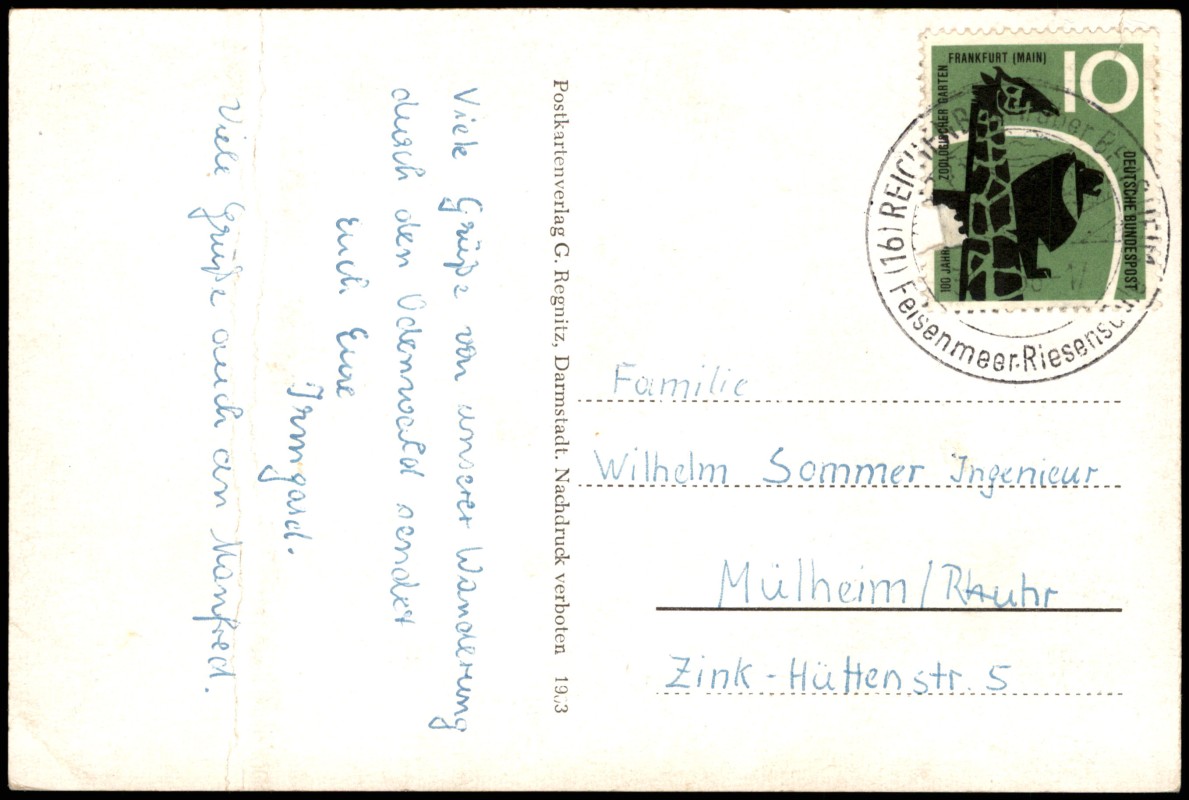 Viele Grüße von unserer Wanderung
durch den Odenwald sendet
Euch Eure
Irmgard.
Viele Grüße auch an Manfred.
Postkartenverlag G. Regnitz, Darmstadt. Nachdruck verboten
FRANKFURT (MAIN)
10
ZOOLOGISCHER GARTEN
100 JAHR
DEUTSCHE BUNDESPOST
(16) REICHENB
Felsenmeer-Riesensä
Familie
Wilhelm Sommer Ingenieur
Mülheim/Rhuhr
Zink-Hüttenstr. 5